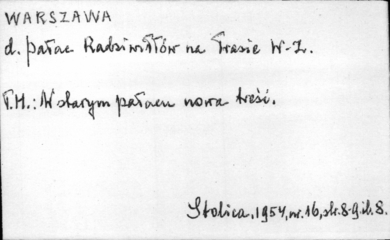 WARSZAWA
d. pałac Radziwiłłów na Trasie W-Z.
T.H.: W starym pałacu nowa treść.
Stolica, 1954, nr. 16, str. 8-9, il. 8.